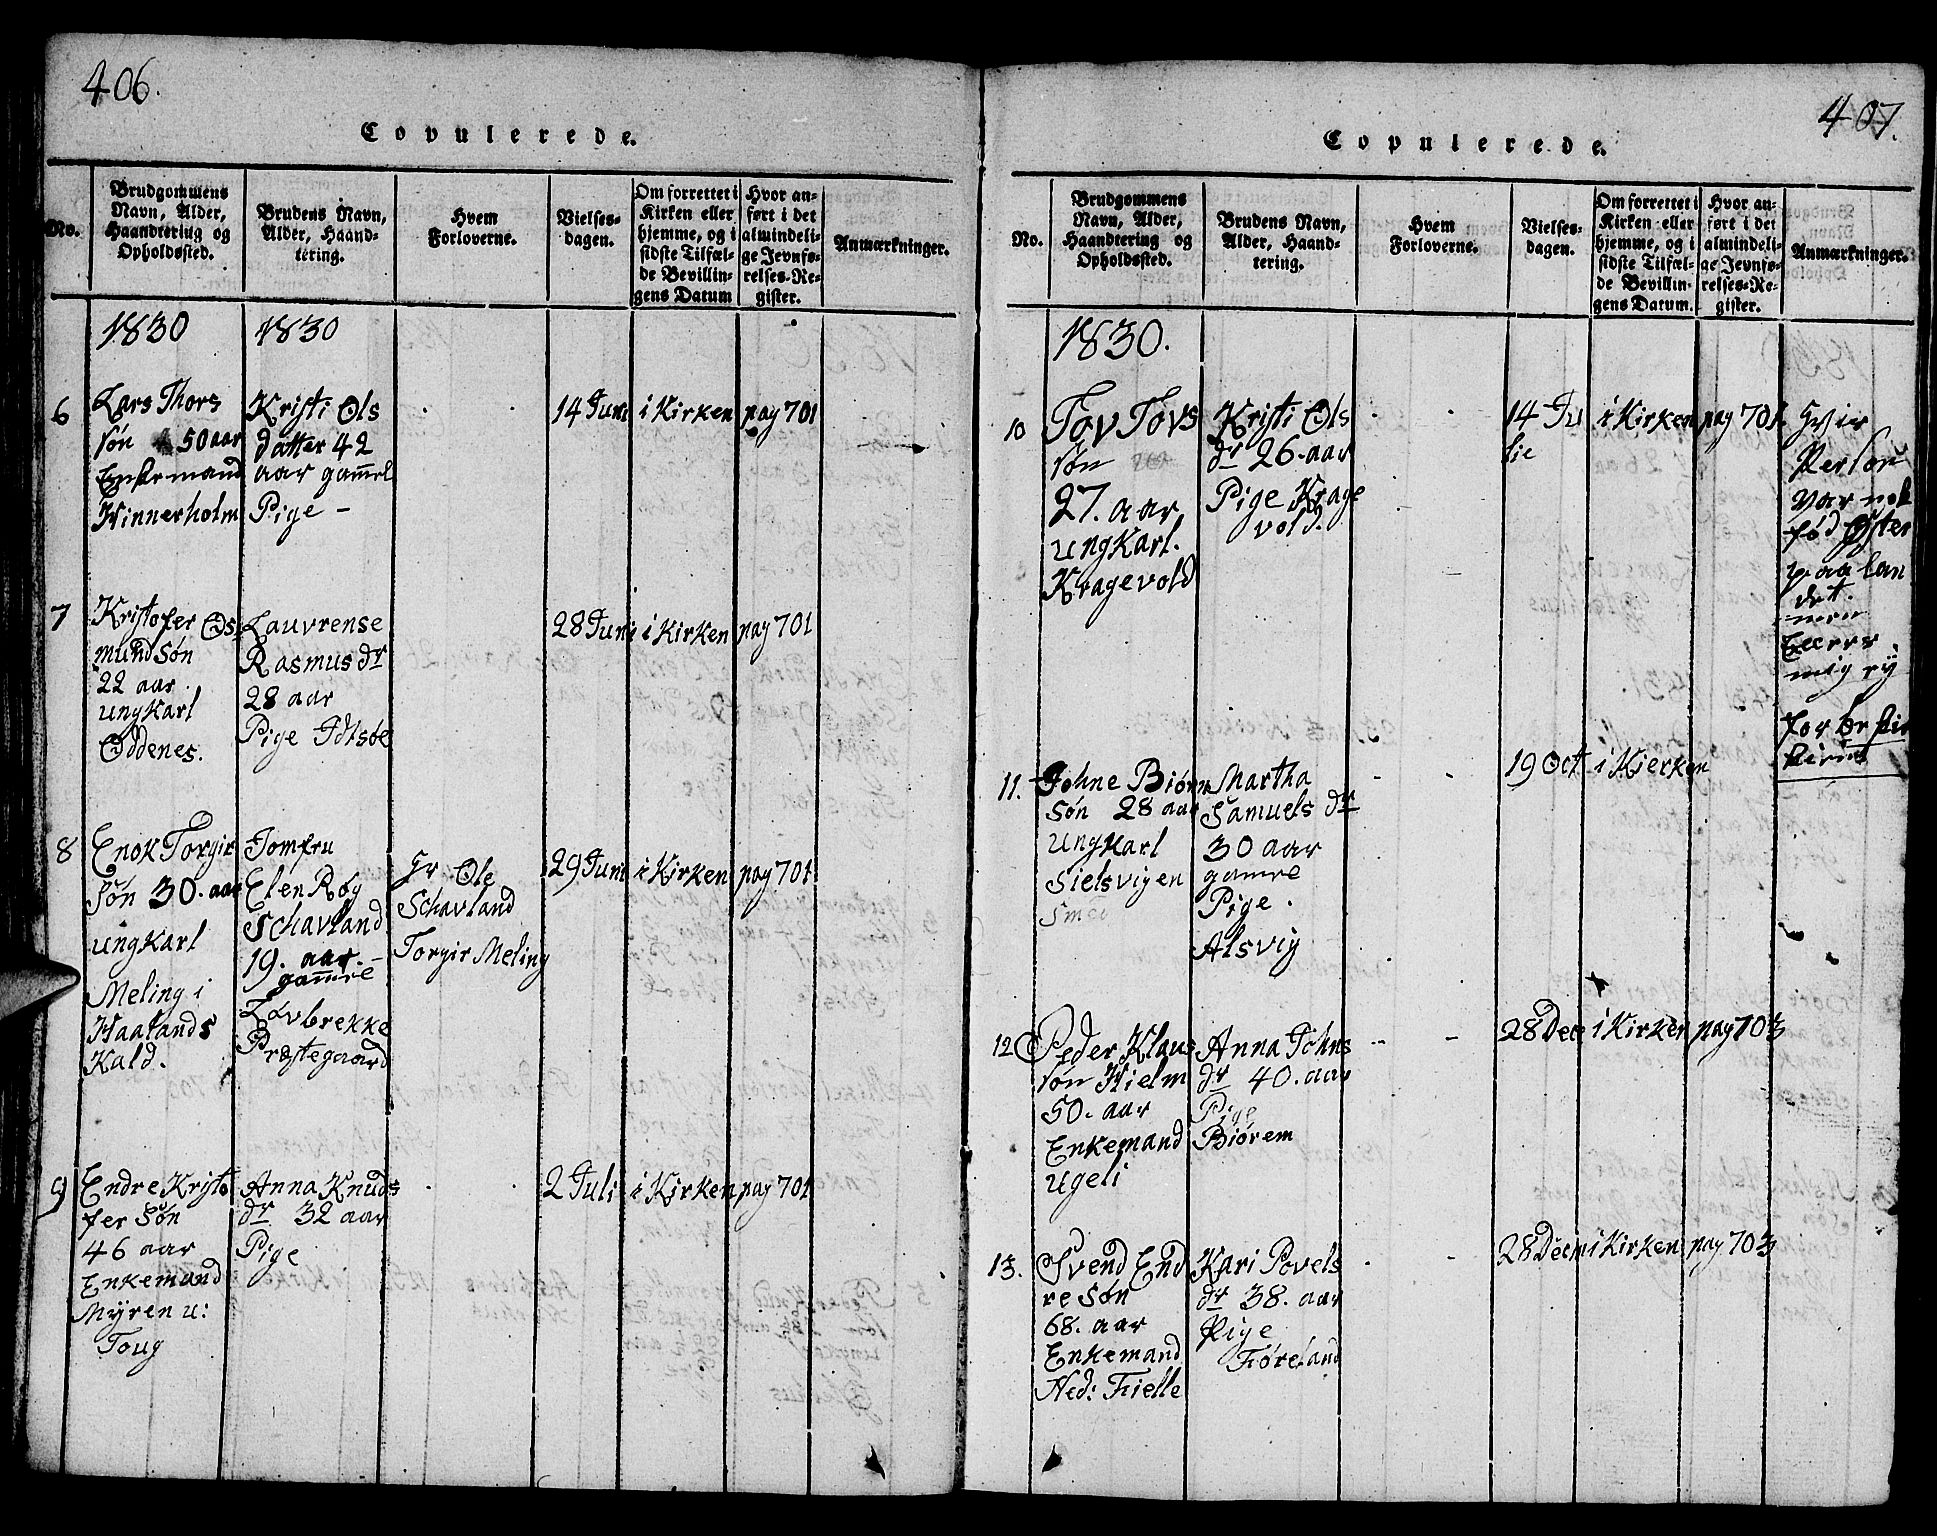 406.
Copulerede.
No.
Brudgommens
Navn, Alder,
Haandtering og
Opholdssted.
Brudens Navn,
Alder, Haand-
tering.
Hvem
Forloverne.
Vielses-
dagen.
Om forrettet i
Kirken eller
hjemme, og i
sidste Tilfæl-
de Bevillin-
gens Datum
Hvor an-
ført i det
almindeli-
ge Jevnfø-
relses-Re-
gister.
Anmærkninger.
1830
1830
6
Lars Thors
søn 50 aar
Enkemand
Vinnerholm
Kristi Ols
datter 42
aar gam̅el
Pige -
14 Juni
i Kirken
pag 701
7
Kristofer Os
mundsøn
22 aar
ungKarl
Oddenes.
Lauvrense
Rasmus dr
28 aar
Pige Idtsøe
28 Juni
i Kirken
pag 701
8
Enok Torgir
søn 30. aar
ungKarl
Meling i
Haalands
Kald.
Jomfru
Elen Røg
Schavland
19. aar. -
gam̅le
Løvbrekke
Præstegaard
Hr Ole
Schavland
Torgir Meling
29 Juni
i Kirken
pag 701
9
Endre Kristo
fer Søn
46 aar
Enkemand
Myren u:
Toug
Anna Knuds
dr 32 aar
Pige
2 Juli
i Kirken
pag 701
407.
Copulerede.
No.
Brudgommens
Navn, Alder,
Haandtering og
Opholdssted.
Brudens Navn,
Alder, Haand-
tering.
Hvem
Forloverne.
Vielses-
dagen.
Om forrettet i
Kirken eller
hjemme, og i
sidste Tilfæl-
de Bevillin-
gens Datum.
Hvor an-
ført i det
almindeli-
ge Jevnfø-
relses-Re-
gister.
Anmærkninger.
1830.
10
Tov Tovs
søn
27. aar
ungKarl.
Kragevold
Kristi Ols
dr 26. aar
Pige Krage
vold.
14 Ju
lie
i Kirken
pag 701.
Person
var nok
fød Østen
paa lan
det.
men
mig
for
11.
Johne Biørn
søn 28 aar
ungKarl
Sielsvigen
Smed
Martha
Samuels dr
30 aar
gamle
Pige.
Alsvig
19 Oct
i Kierken
12
Peder Klaus
søn Hielm
50. aar
Enkemand
ugeli
Anna Johns
dr 40. aar
Pige
Biørem
28 Dece
i Kirken
pag 703
13.
Svend End
re søn
68. aar
Enkemand
Ned: Fielle
Kari Povels
dr 38. aar
Pige
Føreland
28 Decm
i Kirken
pag 703